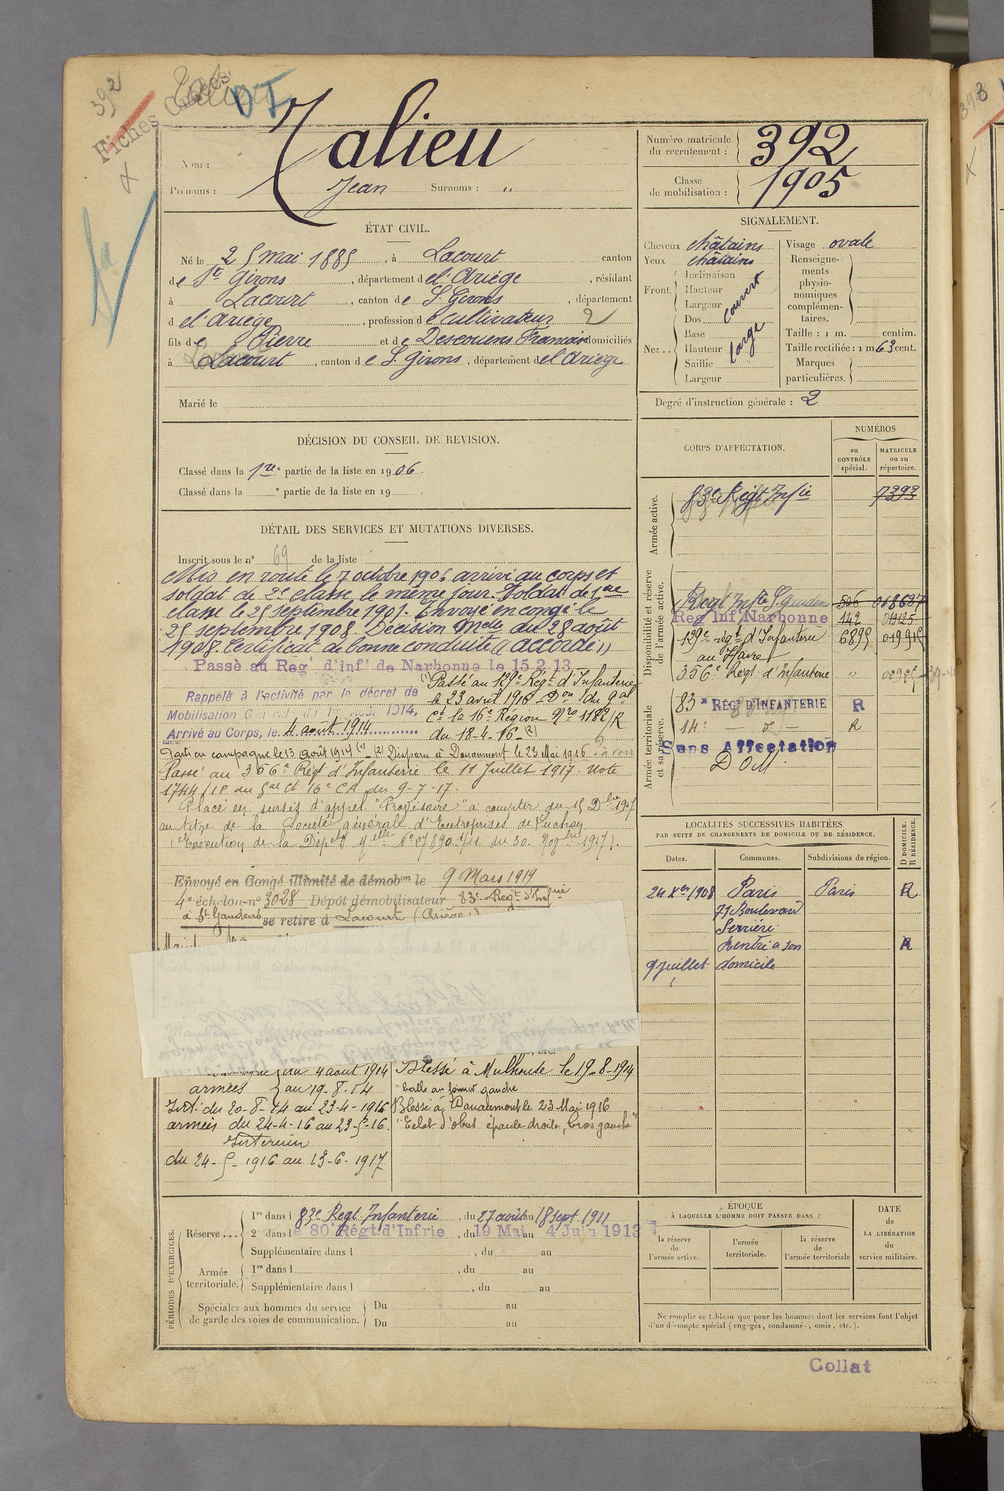 392
Fiches Croisées
Nom :
Talieu
Prénoms : Jean Surnoms : "
Numéro matricule
du recrutement : 392
Classe
de mobilisation : 1905
ÉTAT CIVIL.
Né le 25 mai 1885, à Lacourt canton
de St Girons, département de l'Ariège, résidant
à Lacourt, canton de St Girons, département
d el'Ariège, profession de cultivateur 2
fils de Pierre et de Descouens domiciliés
à Lacourt, canton de St Girons, département de l'Ariège
Marié le
SIGNALEMENT.
Cheveux châtains Visage ovale
Yeux châtains
Front. Inclinaison
Hauteur
Largeur
couvert
Nez.. Dos
Base
Hauteur
Saillie
Largeur
large
Renseigne-
ments
physio-
nomiques
complémen-
taires.
Taille : 1 m. centim.
Taille rectifiée : 1 m 63 cent.
Marques
particulières.
Degré d'instruction générale : 2
DÉCISION DU CONSEIL DE REVISION.
Classé dans la 1re partie de la liste en 1906.
Classé dans la e partie de la liste en 19
DÉTAIL DES SERVICES ET MUTATIONS DIVERSES.
Inscrit sous le n° 69 de la liste
Mis en route le 7 octobre 1906 arrivé au corps et
soldat de 2e classe le même jour. Soldat de 1re
classe le 25 septembre 1907. Envoyé en congé le
25 septembre 1908. Décision Melle du 28 août
1908. Certificat de bonne conduite "accordé"
Passé au Reg' d'inf' de Narbonne le 15 2 13
Rappelé à l'activité par le décret de
Mobilisation Générale du 1er Août 1914,
Arrivé au Corps, le 4 août 1914
(1) Passé au 129e Régt d'Infanterie
le 23 avril 1916 Don du Gal
Ct la 16e Région Nro 1182/R
du 18-4-16 (2)
Parti en campagne le 13 août 1914 (1) (2) Disparu à Douaumont le 23 Mai 1916
Passé au 356e Régt d'Infanterie le 11 Juillet 1917. Note
1744/1P du Gal Ct 16e CR du 9-7-17.
Placé en sursis d'appel "Provisoire" à compter du 15 Dbre 1917
au titre de la Société générale d'Entreprises de Luchon
(Exécution de la Dépêche Melle N° 27890 du 30 Novbre 1917).
Envoyé en Congé illimité de démobon le 9 Mars 1919
4e échelon n° 3028 Dépôt démobilisateur 83e Regt d'Infrie
à St Gaudens se retire à Lacourt (Ariège)
CORPS D'AFFECTATION.
NUMÉROS
au
CONTRÔLE
spécial.
MATRICULE
ou au
répertoire.
Armée active.
83e Régt Infie 7393
Disponibilité et réserve
de l'armée active.
Regt Infie St Gaudens 506 018697
Reg Inf Narbonne 142
129e régt d'Infanterie 6895
au Havre
356e Régt d'Infanterie "
Armée territoriale
et sa réserve.
83e RÉGt D'INFANTERIE R
14e d° R
Sans Affectation
DOM
LOCALITÉS SUCCESSIVES HABITÉES
PAR SUITE DE CHANGEMENTS DE DOMICILE OU DE RÉSIDENCE.
Dates. Communes. Subdivisions de région. D DOMICILE. R RÉSIDENCE.
24 Xbre 1908 Paris Paris R
71 Boulevard
Serrurier
Rentré à son R
9 juillet domicile
du 4 août 1914
armées au 19-8-14
Int. du 20-8-14 au 23-4-1916
armées du 24-4-16 au 23-5-16.
Intérieur
du 24-5-1916 au 13-6-1917
Blessé à Mulhouse le 19-8-1914
"balle au fémur gauche
Blessé à Douaumont le 23 Mai 1916
"Eclat d'obus épaule droite, bras gauche"
PÉRIODES D'EXERCICES.
Réserve.... 1re dans l 83e Regt Infanterie, du 27 août au 18 sept 1911
2e dans l e 80e Régt d'Infrie, du 19 Mai au 4 Juin 1913
Supplémentaire dans l , du au
Armée
territoriale. 1re dans l , du au
Supplémentaire dans l , du au
Spéciales aux hommes du service
de garde des voies de communication. Du au
Du au
ÉPOQUE
À LAQUELLE L'HOMME DOIT PASSER DANS :
la réserve
de
l'armée active.
l'armée
territoriale.
la réserve
de
l'armée territoriale
DATE
de
LA LIBÉRATION
du
service militaire.
Ne remplir ce tableau que pour les hommes dont les services font l'objet
d'un décompte spécial (engagés, condamnés, omis, etc.).
Collat
393